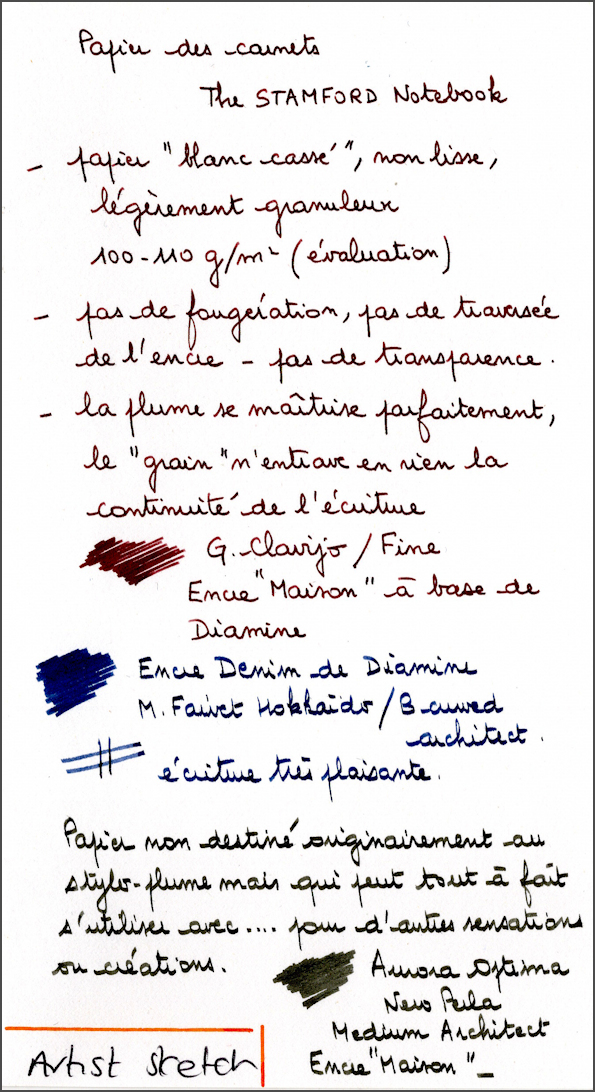 Papier des carnets
The STAMFORD Notebook
- papier "blanc cassé", non lisse,
légèrement granuleux
100-110 g/m² (évaluation)
- pas de fougeration, pas de traversée
de l'encre - pas de transparence.
- la plume se maîtrise parfaitement,
le "grain" n'entrave en rien la
continuité de l'écriture
G. Clavijo / Fine
Encre "Maison" à base de
Diamine
Encre Denim de Diamine
M. Fauvet Hokkaïdo / B cuwed
architect.
écriture très plaisante.
Papier non destiné originairement au
stylo-plume mais qui peut tout à fait
s'utiliser avec.... pour d'autres sensations
ou créations.
Aurora Optima
New Perla
Medium Architect
Encre "Maison"_
Artist sketch